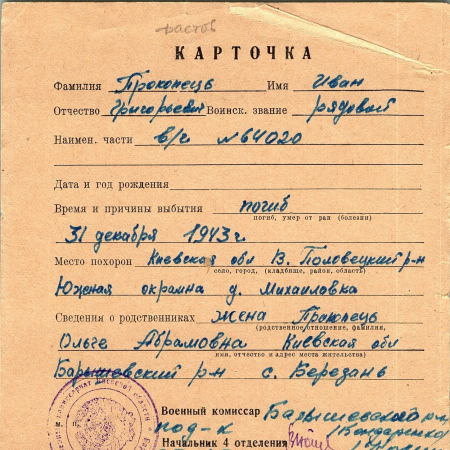 растов
КАРТОЧКА
Фамилия Прокопець Имя Иван
Отчество Григорьевич Воинск. звание рядовой
Наимен. части в/ч №64020
Дата и год рождения
Время и причины выбытия погиб
погиб, умер от ран (болезни)
31 декабря 1943 г.
Место похорон Киевская обл В. Половецкий р-н
село, город, (кладбище, район, область)
Южная окраина д. Михайловка
Сведения о родственниках жена Прокопець
(родственное отношение, фамилия,
Ольге Абрамовна Киевская обл
имя, отчество и адрес места жительства)
Барышевский р-н с. Березань
Военный комиссар Барышевского р-н
под-к (Бондаренко)
Начальник 4 отделения